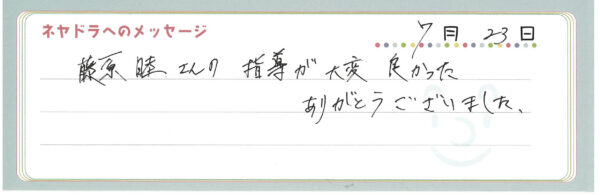 ネヤドラへのメッセージ
7月 23日
藤原 睦さんの 指導が大変 良かった
ありがとうございました。